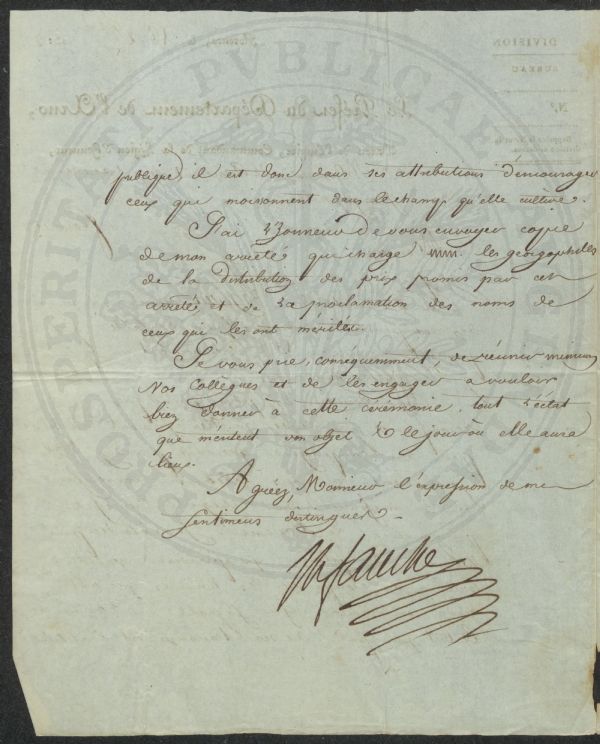 publique, il est donc dans ses attributions d'encourager
ceux qui moissonnent dans le champ qu'elle cultive.
J'ai l'honneur de vous envoyer copie
de mon arrêté qui charge mm. les géorgophiles
de la distribution des prix promis par cet
arrêté et de la proclamation des noms de
ceux qui les ont mérités.
Je vous prie, conséquemment, de réunir
Nos collegues et de les engager a vouloir
bien donner à cette cérémonie, tout l'éclat
que méritent son objet & le jour où elle aura
lieu.
Agréez, Monsieur l'expression de mes
sentimens distingués.